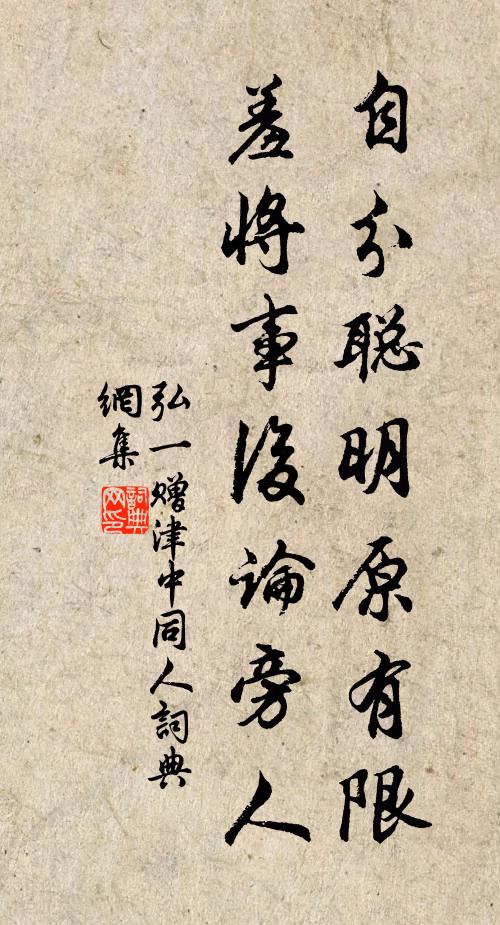 自分聪明原有限
羞將事後論旁人
弘一赠津中同人詞典
網集
詞典
网印